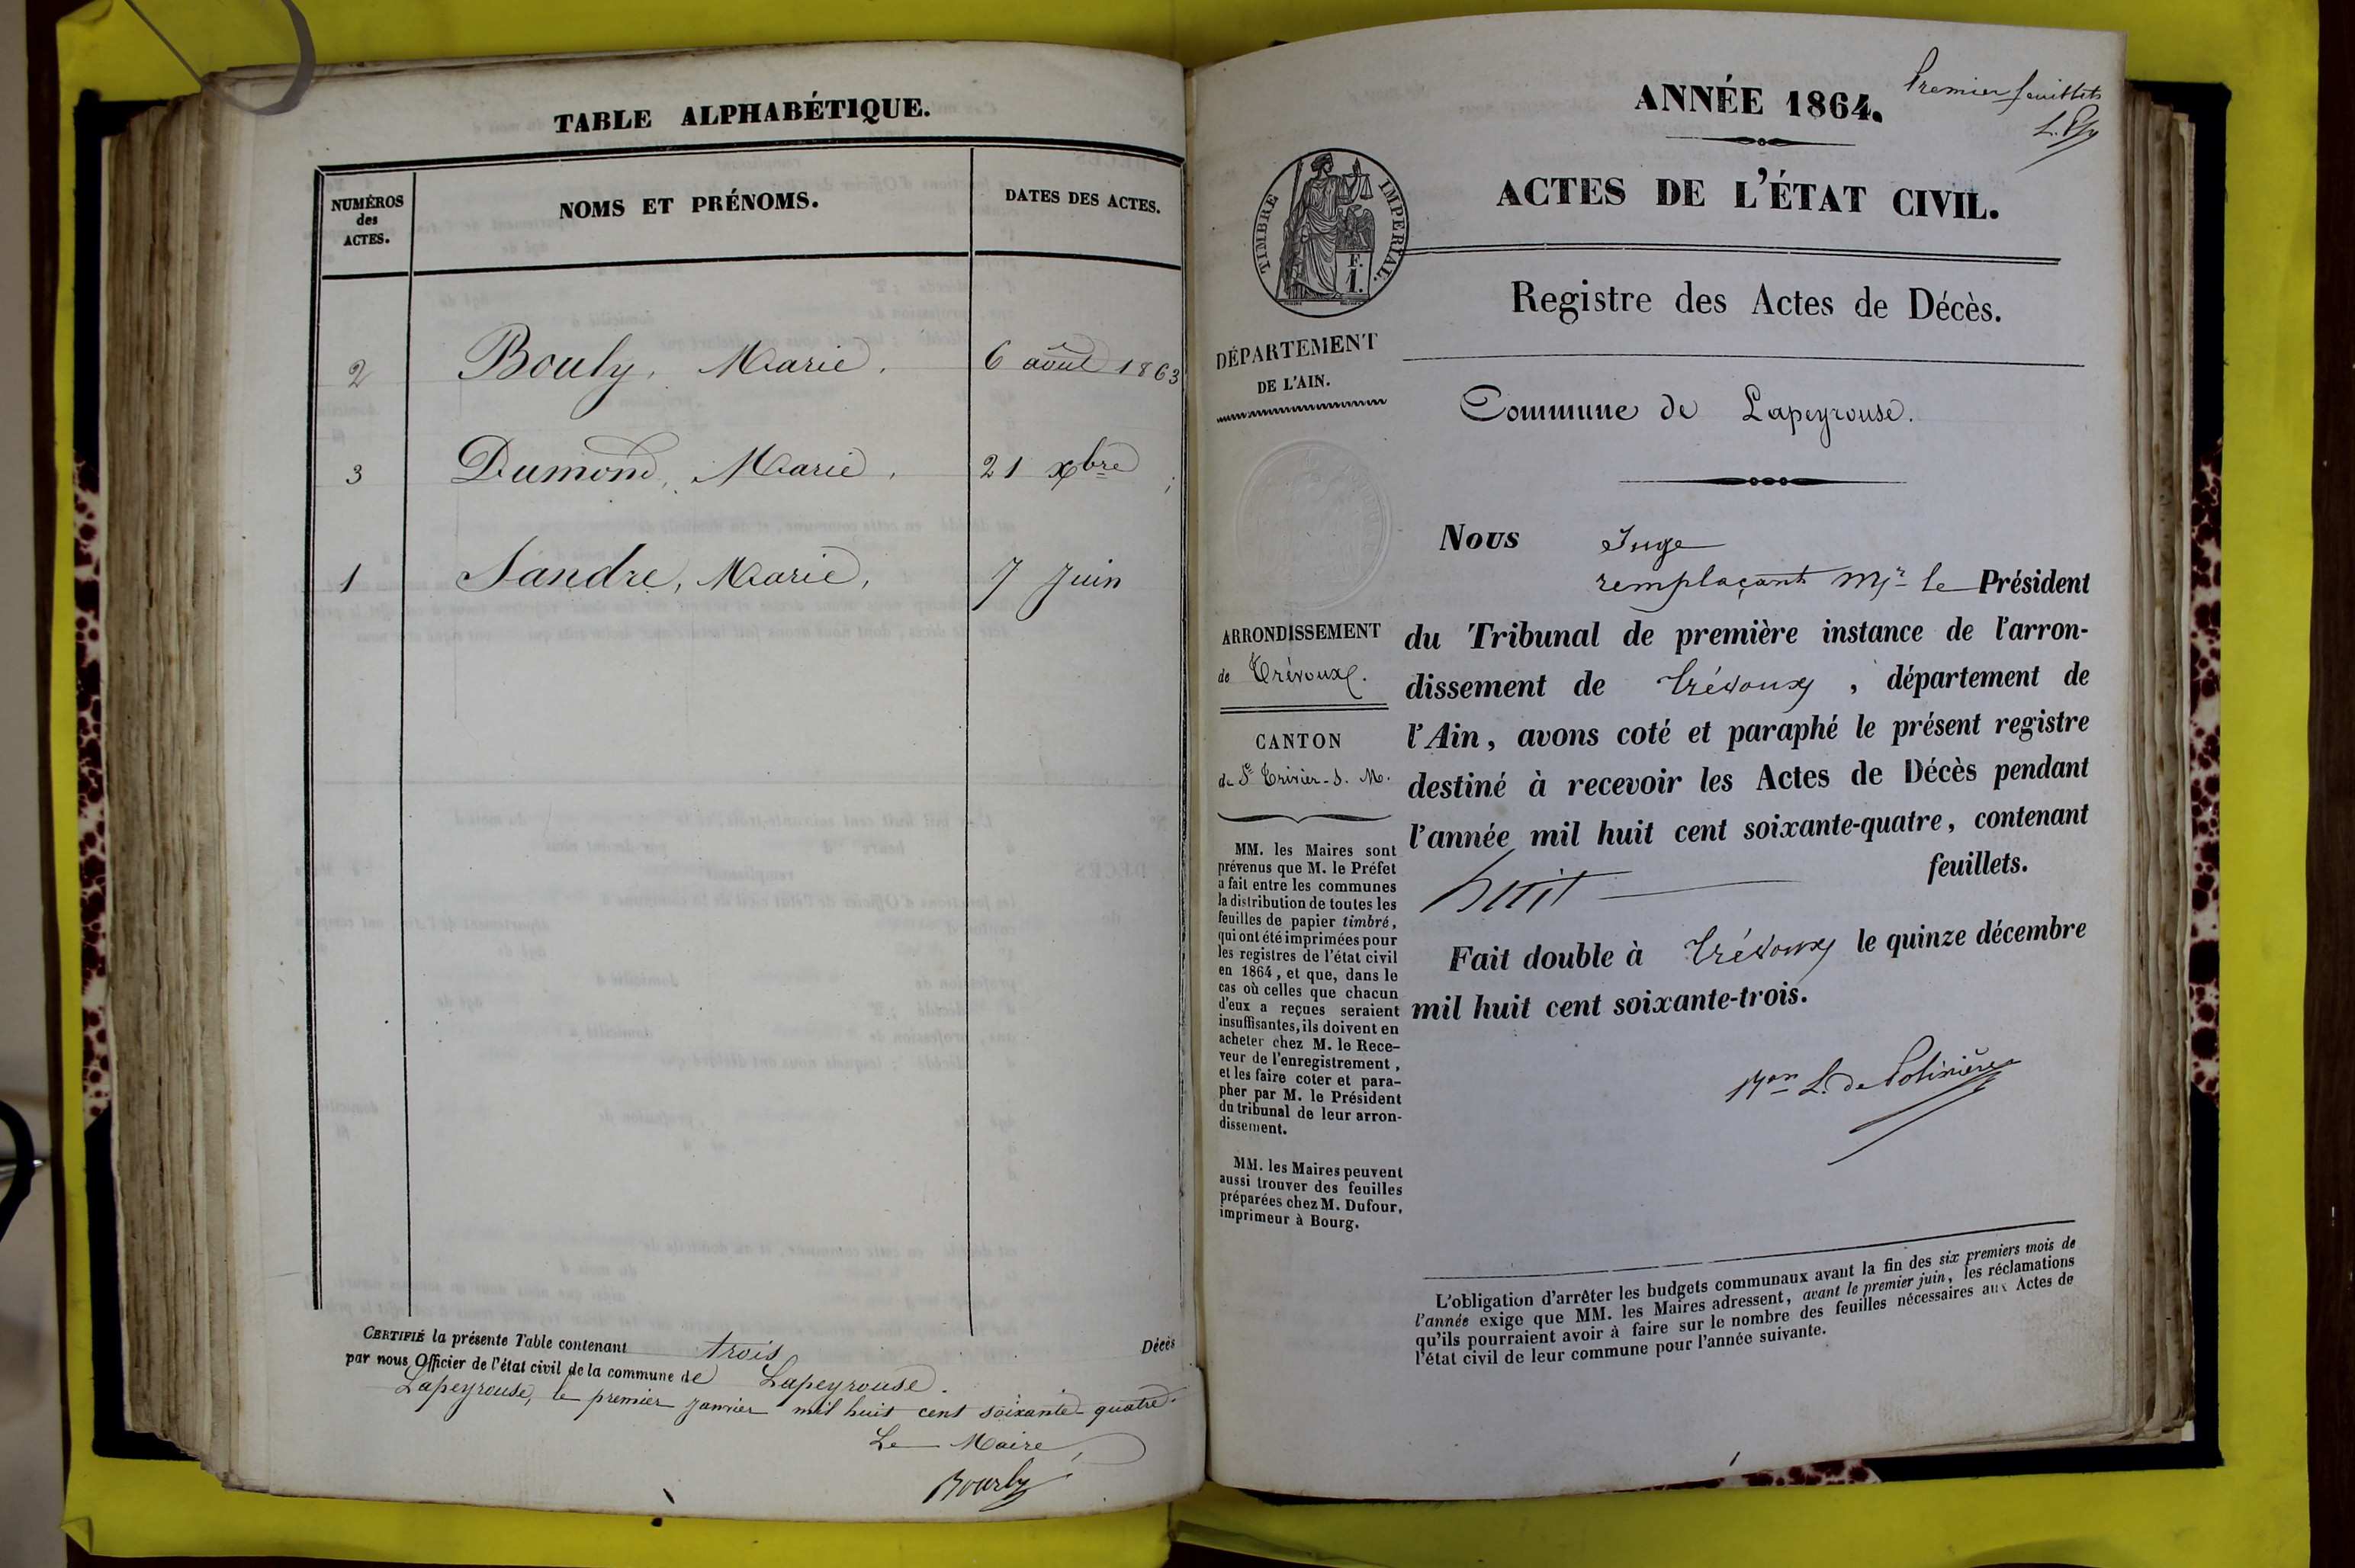 TABLE ALPHABÉTIQUE.
NUMÉROS
des
ACTES.
NOMS ET PRÉNOMS.
DATES DES ACTES.
2 Bouly, Marie, 6 août 1863
3 Dumond, Marie, 21 xbre
1 Sandre, Marie, 7 Juin
CERTIFIÉ la présente Table contenant trois Décès
par nous Officier de l'état civil de la commune de Lapeyrouse.
Lapeyrouse, le premier janvier mil huit cent soixante-quatre.
Le Maire,
Bourly
Premier feuillets
ANNÉE 1864.
ACTES DE L'ÉTAT CIVIL.
TIMBRE IMPÉRIAL.
F.
1.
Registre des Actes de Décès.
DÉPARTEMENT
DE L'AIN.
Commune de Lapeyrouse.
ARRONDISSEMENT
de Trévoux.
CANTON
de St Trivier-s. M.
MM. les Maires sont
prévenus que M. le Préfet
a fait entre les communes
la distribution de toutes les
feuilles de papier timbré,
qui ont été imprimées pour
les registres de l'état civil
en 1864, et que, dans le
cas où celles que chacun
d'eux a reçues seraient
insuffisantes, ils doivent en
acheter chez M. le Rece-
veur de l'enregistrement,
et les faire coter et para-
pher par M. le Président
du tribunal de leur arron-
dissement.
MM. les Maires peuvent
aussi trouver des feuilles
préparées chez M. Dufour,
imprimeur à Bourg.
Nous Juge
remplaçant Mr le Président
du Tribunal de première instance de l'arron-
dissement de Trévoux, département de
l'Ain, avons coté et paraphé le présent registre
destiné à recevoir les Actes de Décès pendant
l'année mil huit cent soixante-quatre, contenant
huit feuillets.
Fait double à Trévoux le quinze décembre
mil huit cent soixante-trois.
L. de Polinière
L'obligation d'arrêter les budgets communaux avant la fin des six premiers mois de
l'année exige que MM. les Maires adressent, avant le premier juin, les réclamations
qu'ils pourraient avoir à faire sur le nombre des feuilles nécessaires aux Actes de
l'état civil de leur commune pour l'année suivante.